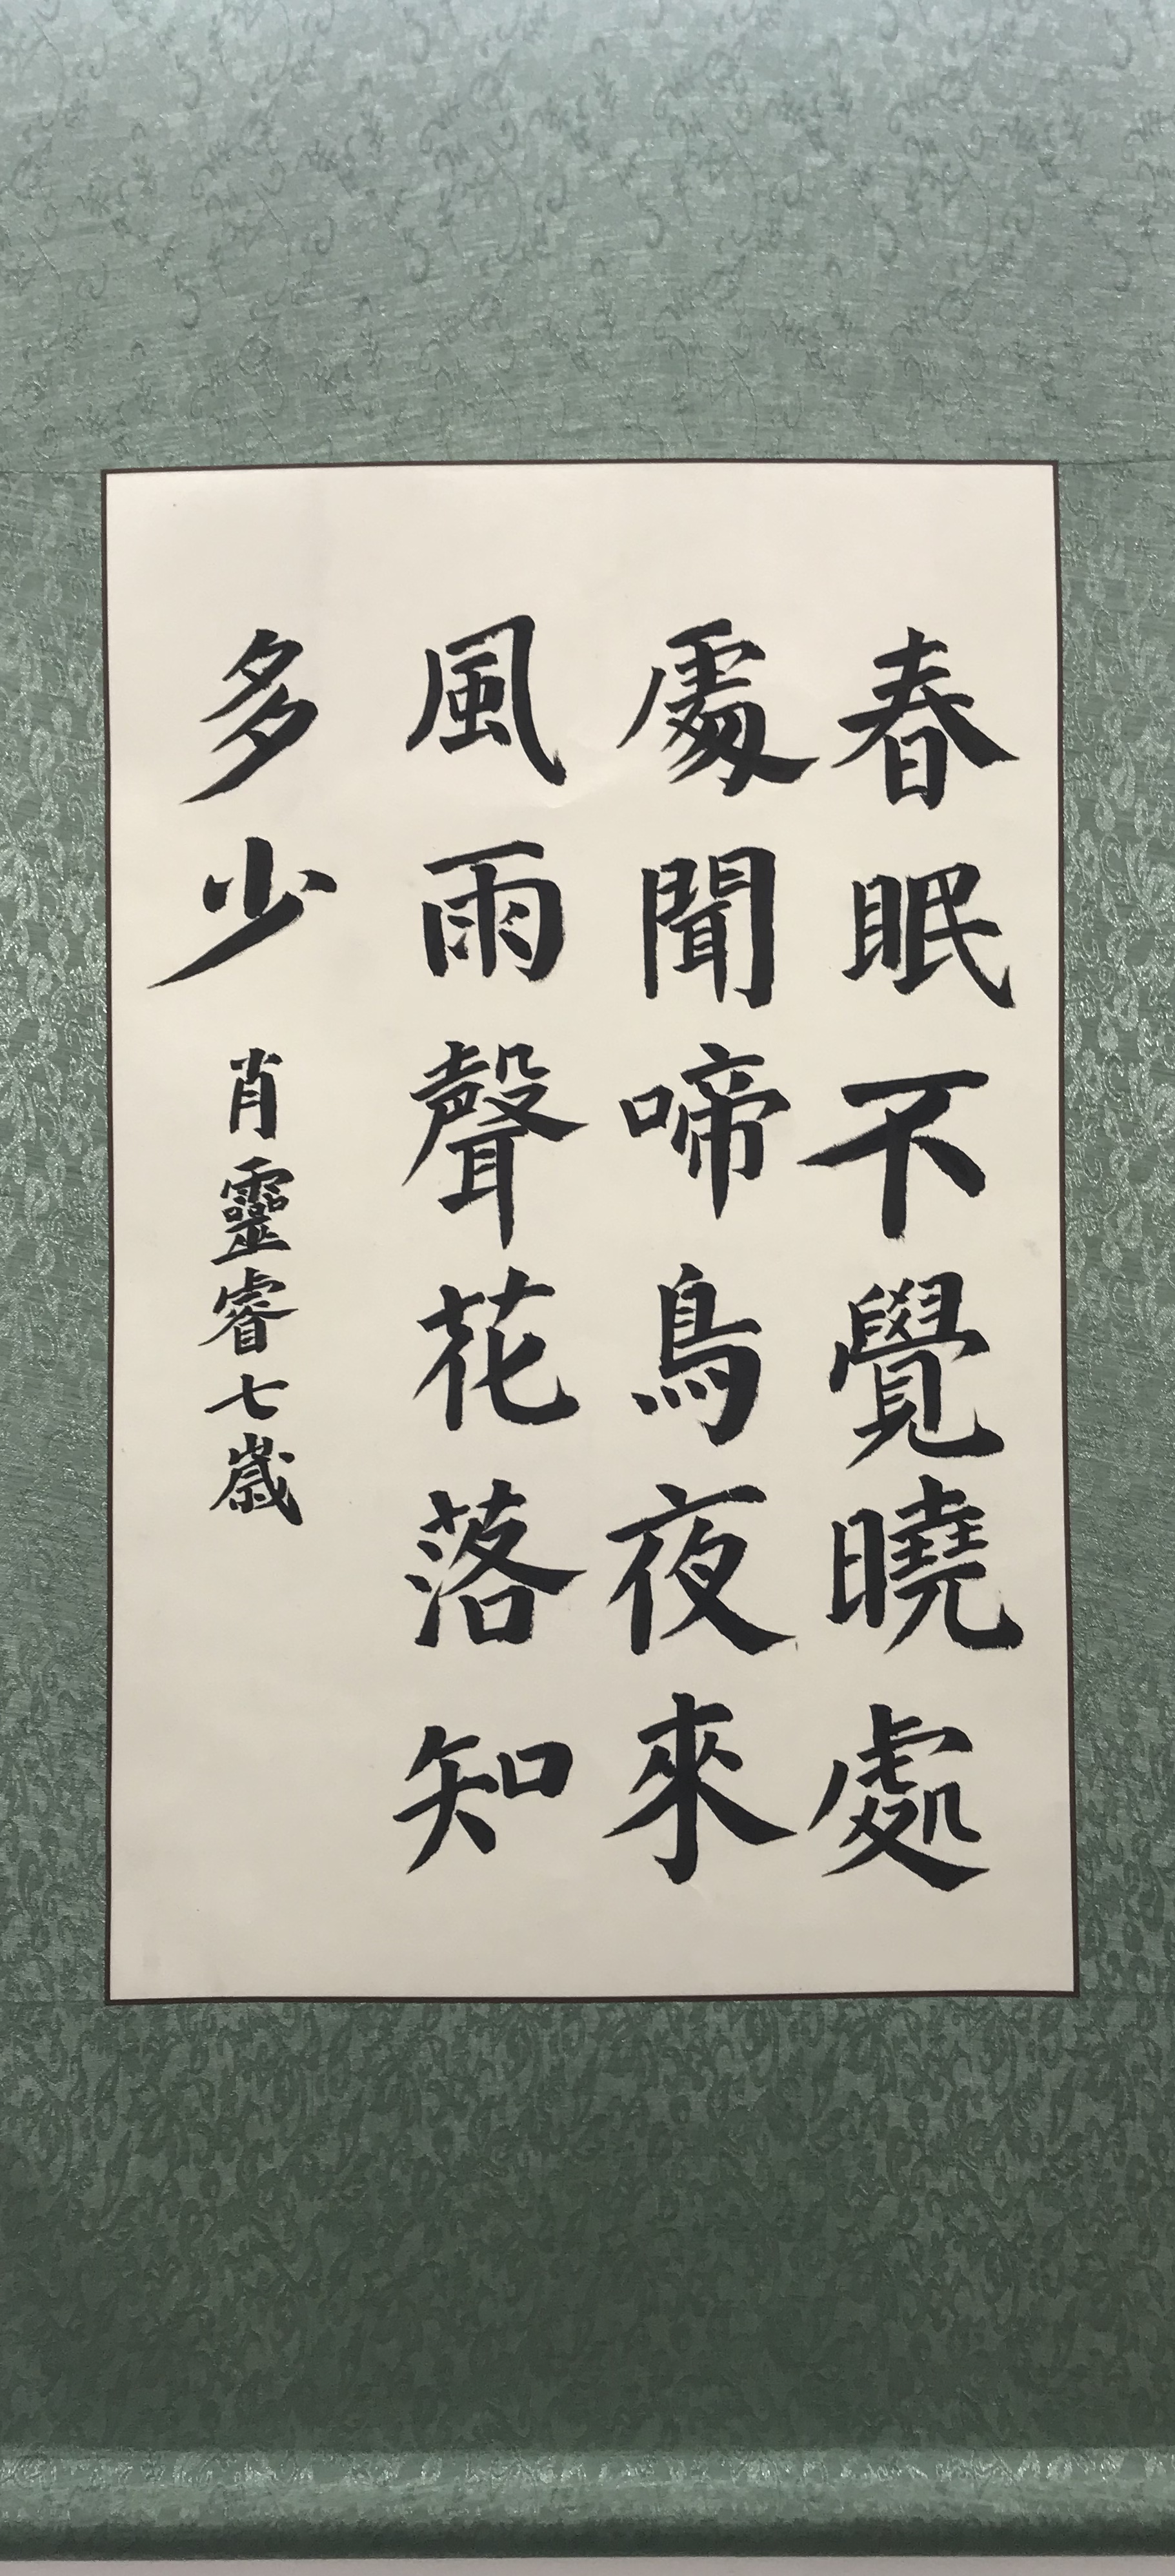 春眠不覺曉處
處聞啼鳥夜來
風雨聲花落知
多少 肖靈睿七歲